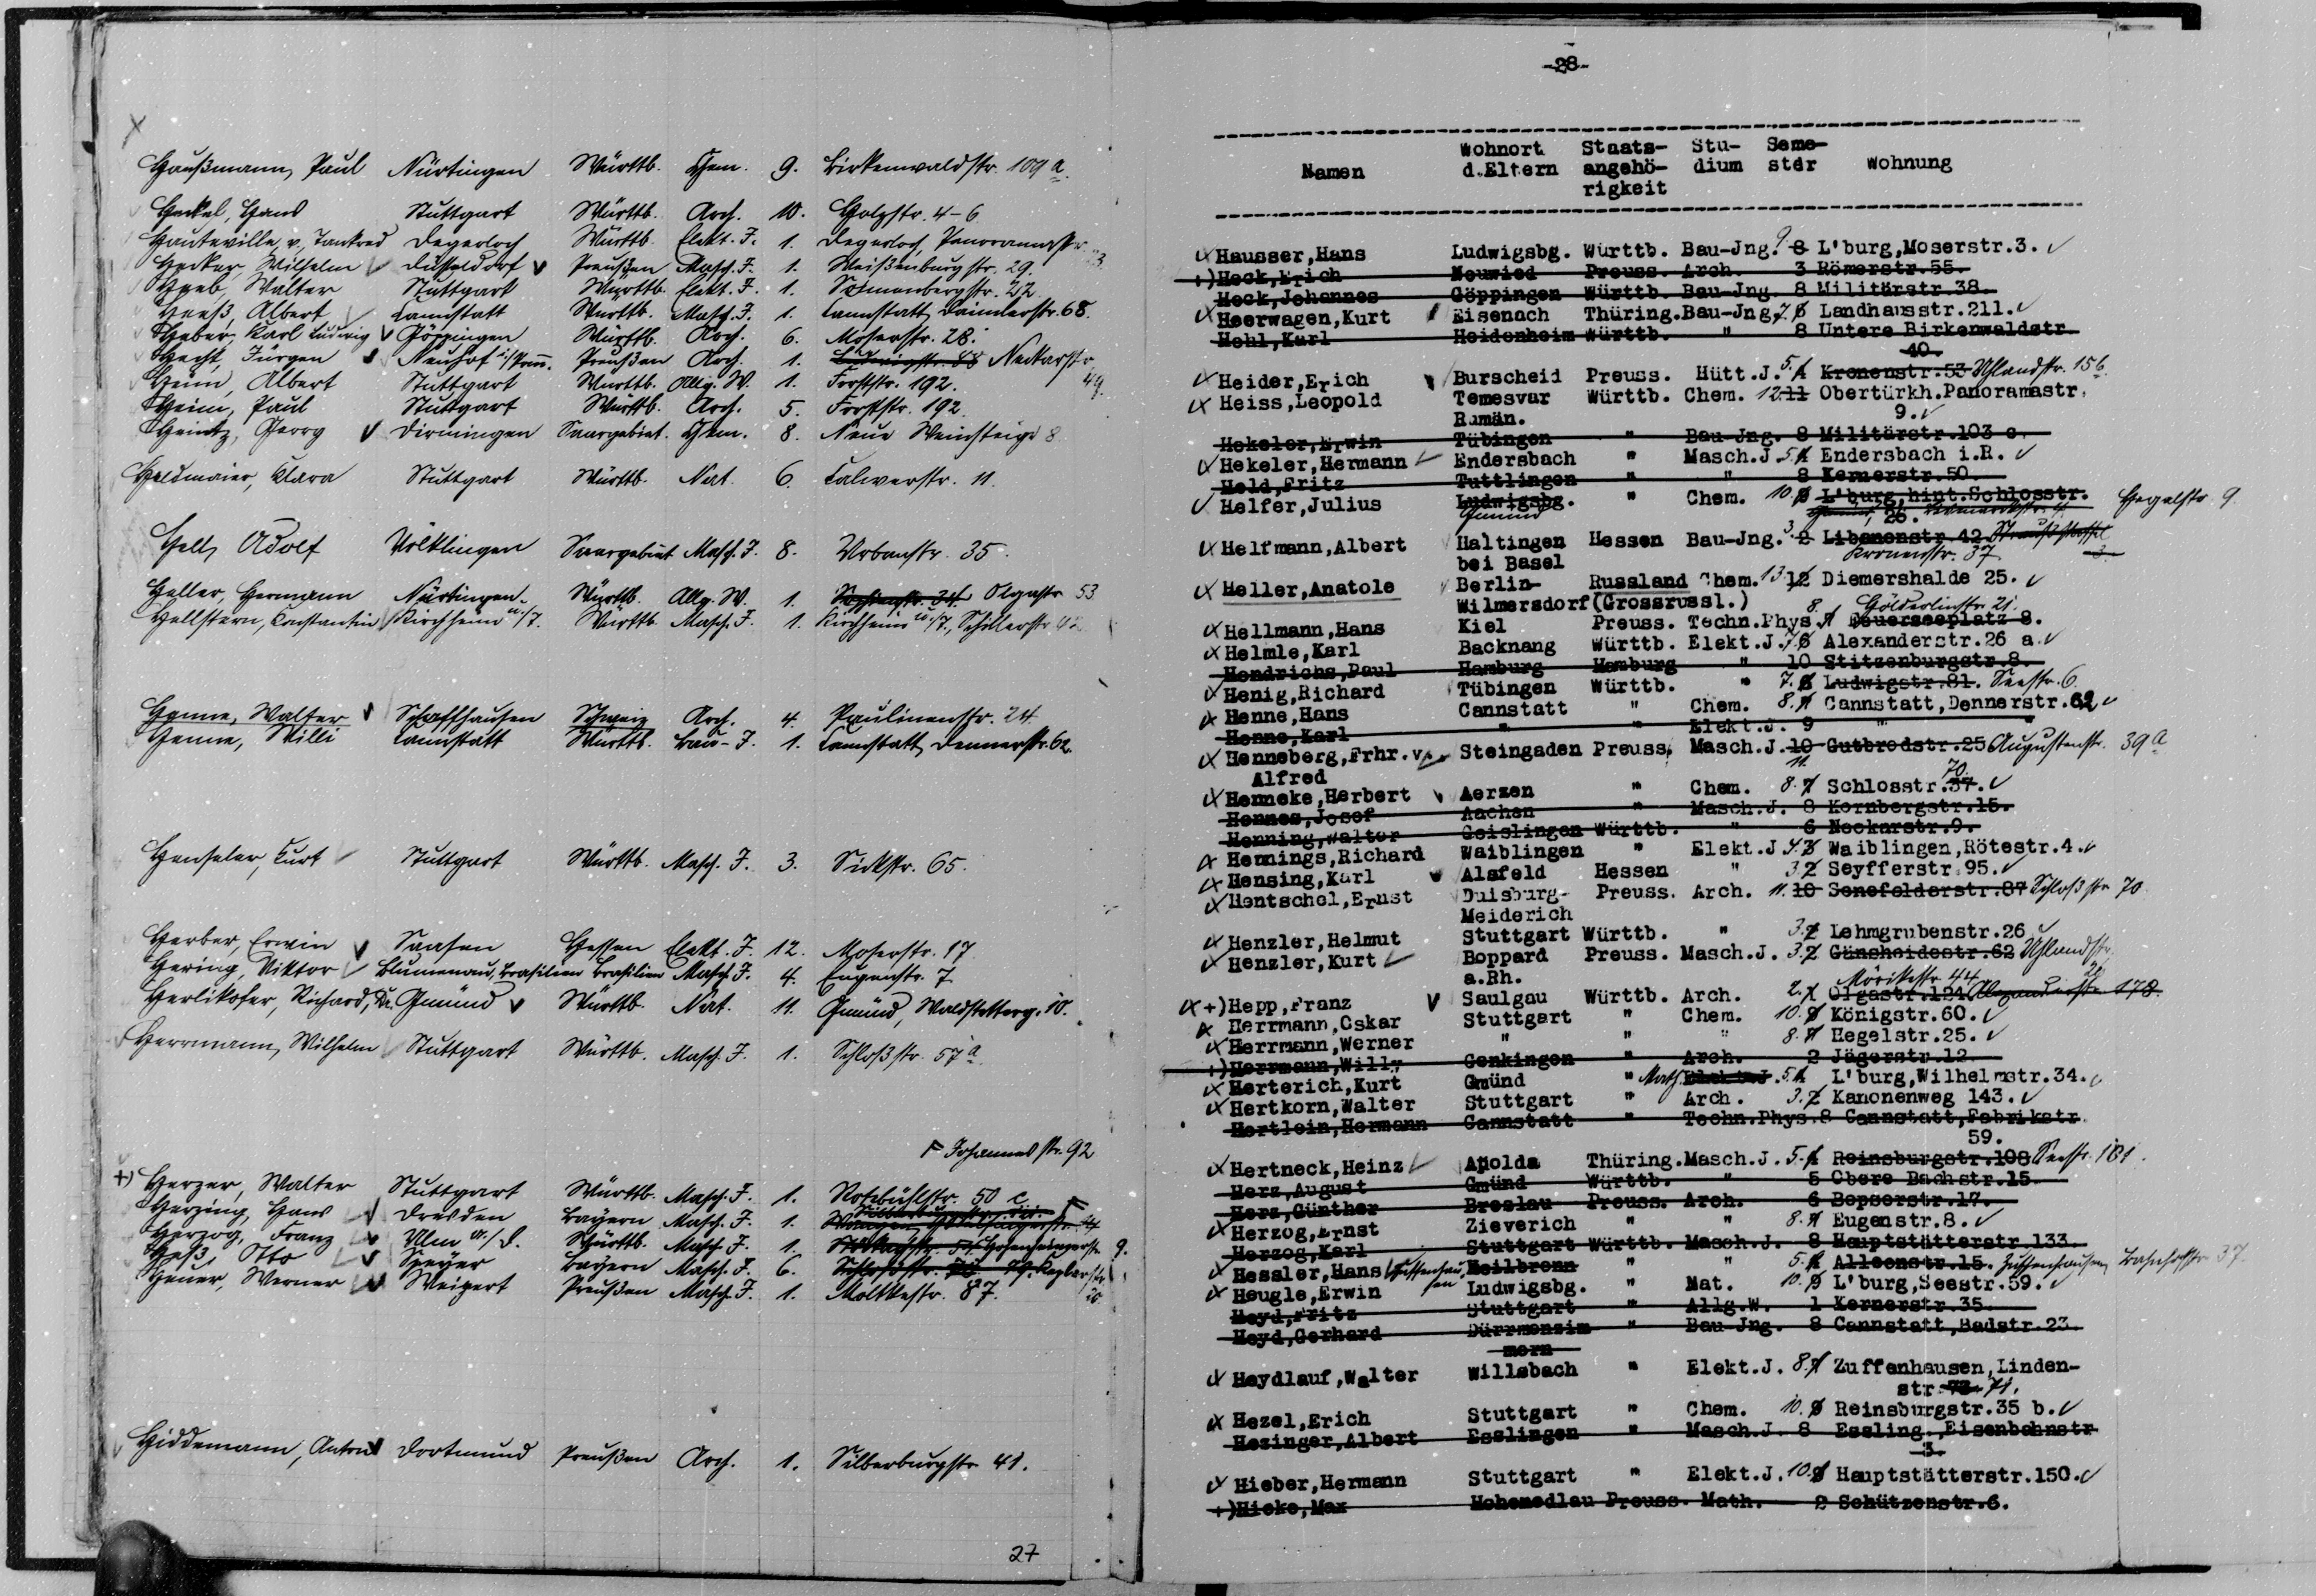 Haußmann, Paul Nürtingen Württb. Chem. 9. Birkenwaldstr. 109 a.
Heckel, Hans Stuttgart Württb. Arch. 10. Holzstr. 4-6
Hauteville, v., Tankred Degerloch Württb. Elekt. J. 1. Degerloch, Panoramastr.
Hecker, Wilhelm Düsseldorf Preußen Masch. J. 1. Weißenburgstr. 29.
Heeb, Walter Stuttgart Württb. Elekt. J. 1. 22.
Heeß, Albert Cannstatt Württb. Masch. J. 1. Cannstatt, Daimlerstr. 68.
Heber, Karl Ludwig Göppingen Württb. Arch. 6. Moserstr. 28.
Hecht, Jürgen Neuhof Preußen Arch. 1. Ludwigstr. 88 Neckarstr.
49.
Heim, Albert Stuttgart Württb. Allg. W. 1. Forststr. 192.
Heim, Paul Stuttgart Württb. Arch. 5. Forststr. 192.
Heintz, Georg Dirmingen Saargebiet Chem. 8. Neue Weinsteige 8
Heldmaier, Clara Stuttgart Württb. Nat. 6. Calwerstr. 11.
Hell, Adolf Völklingen Saargebiet Masch. J. 8. Urbanstr. 35.
Heller, Hermann Nürtingen. Württb. Allg. W. 1. 34. Olgastr 53
Hellstern, Constantin Kirchheim u./T. Württb. Masch. J. 1. Kirchheim u./T., Schillerstr. 42
Henne, Walter Schaffhausen Schweiz Arch. 4. Paulinenstr. 24.
Henne, Willi Cannstatt Württb. Bau-J. 1. Cannstatt, Dennerstr. 62.
Henseler, Kurt Stuttgart Württb. Masch. J. 3. Sickstr. 65.
Herber, Erwin Saasen Hessen Elekt. J. 12. Moserstr. 17
Hering, Viktor Blumenau, Brasilien Brasilien Masch. J. 4. Eugenstr. 7
Herlikofer, Richard, Dr. Gmünd Württb. Nat. 11. Gmünd, Waldstetterg. 10.
Herrmann, Wilhelm Stuttgart Württb. Masch. J. 1. Schloßstr. 57 a
Johannesstr. 92
+) Herzer, Walter Stuttgart Württb. Masch. J. 1. Rotebühlstr. 50 c
Herzing, Hans Dresden Bayern Masch. J. 1.
Herzog, Franz Ulm a./D. Württb. Masch. J. 1. Hohenheimerstr. 9.
Heß, Otto Speyer Bayern Masch. J. 6. Keplerstr.
Heuer, Werner Weipert Preußen Masch. J. 1. Moltkestr. 87.
Hiddemann, Anton Dortmund Preußen Arch. 1. Silberburgstr 41.
27
-28-
Namen Wohnort d.Eltern Staats-angehö-rigkeit Stu-dium Seme-ster Wohnung
Hausser,Hans Ludwigsbg. Württb. Bau-Jng. 9 8 L'burg,Moserstr.3.
+)Heck,Erich Neuwied Preuss. Arch. 3 Römerstr.55.
Heck,Johannes Göppingen Württb. Bau-Jng. 8 Militärstr.38.
Heerwagen,Kurt Eisenach Thüring. Bau-Jng. 7. 6 Landhausstr.211.
Hehl,Karl Heidenheim Württb. " 8 Untere Birkenwaldstr.
40.
Heider,Erich Burscheid Preuss. Hütt.J. 5. 4 Kronenstr.53 Uhlandstr. 156.
Heiss,Leopold Temesvar Württb. Chem. 12. 11 Obertürkh.Panoramastr.
Rumän. 9.
Hekeler,Erwin Tübingen " Bau-Jng. 8 Militärstr.103 c.
Hekeler,Hermann Endersbach " Masch.J. 5. 4 Endersbach i.R.
Held,Fritz Tuttlingen " " 8 Kernerstr.50
Helfer,Julius Ludwigsbg. " Chem. 10. 9 L'burg,hint.Schlosstr. Hegelstr. 9
Gmünd 26.
Helfmann,Albert Haltingen Hessen Bau-Jng. 3 2 Libanonstr.42 Straußstaffel 3.
bei Basel Kronenstr. 37
Heller,Anatole Berlin- Russland Chem. 13 12 Diemershalde 25.
Wilmersdorf (Grossrussl.) Hölderlinstr. 21.
Hellmann,Hans Kiel Preuss. Techn.Phys. 8. 7 Feuerseeplatz 8.
Helmle,Karl Backnang Württb. Elekt.J. 7. 6 Alexanderstr.26 a.
Hendrichs,Paul Hamburg Hamburg " 10 Stitzenburgstr.8.
Henig,Richard Tübingen Württb. " 7. 6 Ludwigstr.81. Seestr. 6.
Henne,Hans Cannstatt " Chem. 8. 7 Cannstatt,Dennerstr.62
Henne,Karl " " Elekt.J. 9 " "
Henneberg,Frhr.v. Steingaden Preuss. Masch.J. 10 Gutbrodstr.25 Augustenstr. 39 a
Alfred 11. 70.
Henneke,Herbert Aerzen " Chem. 8. 7 Schlosstr.37.
Hennes,Josef Aachen " Masch.J. 8 Kornbergstr.15.
Henning,Walter Geislingen Württb. " 6 Neckarstr.9.
Hennings,Richard Waiblingen " Elekt.J. 4. 3 Waiblingen,Rötestr.4.
Hensing,Karl Alsfeld Hessen " 3. 2 Seyfferstr.95.
Hentschel,Ernst Duisburg- Preuss. Arch. 11. 10 Senefelderstr.87 Schloßstr. 70.
Meiderich
Henzler,Helmut Stuttgart Württb. " 3. 2 Lehmgrubenstr.26
Henzler,Kurt Boppard Preuss. Masch.J. 3. 2 Gänsheidestr.62 Uhlandstr.
a.Rh. Mörikestr. 44
+)Hepp,Franz Saulgau Württb. Arch. 2. 1 Olgastr.124 Alexanderstr. 178.
Herrmann,Oskar Stuttgart " Chem. 10. 9 Königstr.60.
Herrmann,Werner " " " 8. 7 Hegelstr.25.
+)Herrmann,Willy Genkingen " Arch. 2 Jägerstr.12.
Herterich,Kurt Gmünd " Math. Elekt.J. 5. 4 L'burg,Wilhelmstr.34.
Hertkorn,Walter Stuttgart " Arch. 3. 2 Kanonenweg 143.
Hertlein,Hermann Cannstatt " Techn.Phys. 8 Cannstatt,Fabrikstr.
59.
Hertneck,Heinz Apolda Thüring. Masch.J. 5. 4 Reinsburgstr.108 Seestr. 101.
Herz,August Gmünd Württb. " 5 Obere Bachstr.15.
Herz,Günther Breslau Preuss. Arch. 6 Bopserstr.17.
Herzog,Ernst Zieverich " " 8. 7 Eugenstr.8.
Herzog,Karl Stuttgart Württb. Masch.J. 8 Hauptstätterstr 133.
Hessler,Hans Zuffenhausen Heilbronn " " 5. 4 Alleenstr.15. Zuffenhausen, Bahnhofstr. 37.
Heugle,Erwin Ludwigsbg. " Mat. 10. 9 L'burg,Seestr.59.
Heyd,Fritz Stuttgart " Allg.W. 1 Kernerstr.35
Heyd,Gerhard Dürrmenzim " Bau-Jng. 8 Cannstatt,Badstr.23.
mern
Heydlauf,Walter Willsbach " Elekt.J. 8. 7 Zuffenhausen,Linden-
str. 73. 71.
Hezel,Erich Stuttgart " Chem. 10. 9 Reinsburgstr.35 b.
Hezinger,Albert Esslingen " Masch.J. 8 Essling.,Eisenbahnstr
3.
Hieber,Hermann Stuttgart " Elekt.J. 10. 9 Hauptstätterstr.150.
+)Hieke,Max Hohenedlau Preuss. Math. 2 Schützenstr.6.